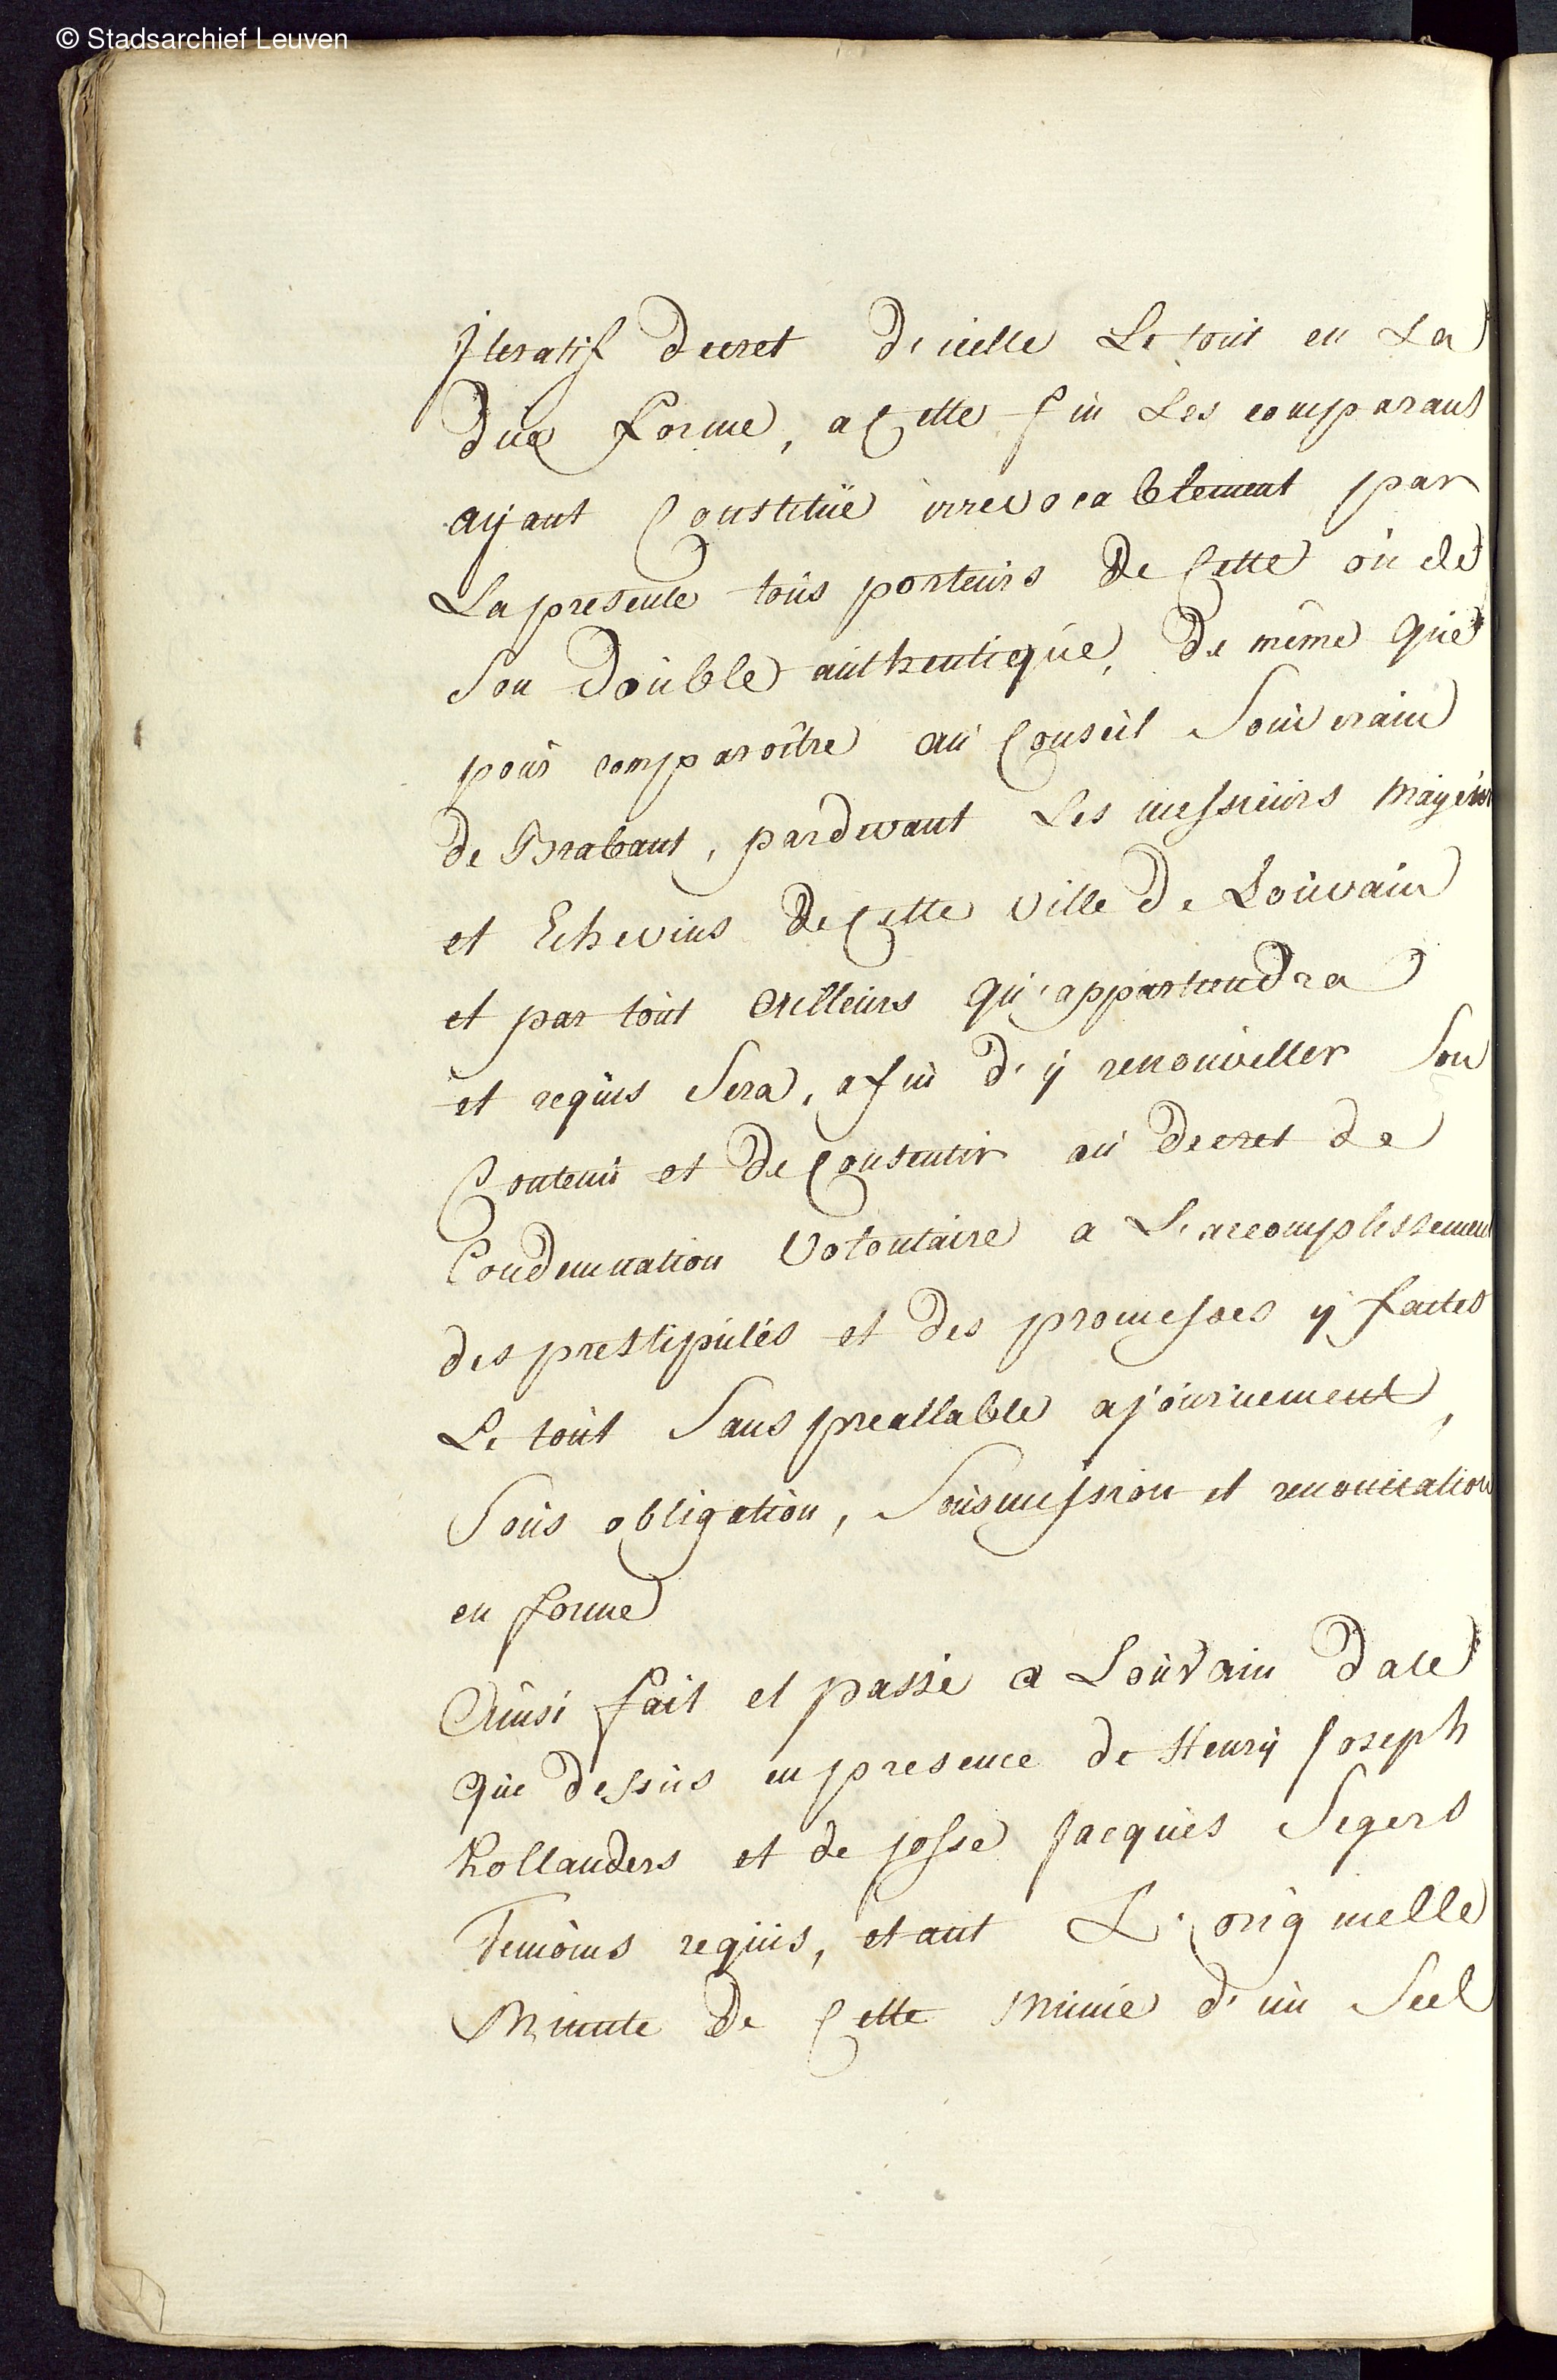 © Stadsarchief Leuven
Iteratif decret d'icelle Le tout en La
due forme, a Cette fin Les comparans
ayant Constitüe irrevocablement par
La presente tous porteurs de Cette ou de
Son double authentique, de même que
pour comparoître au Conseil Souverain
de Brabant, pardevant Les messieurs mayeur
et Echevins de Cette ville de Louvain
et par tout ailleurs qu'appartiendra
et requis Sera, afin d'y renouveller Son
Contenu et de Consentir au decret de
Condemnation Volontaire a L'accomplissement
des prestipulés et des promesses y faites
Le tout Sans preallable ajournement,
Sous obligation, Sousmission et renonciation
en forme
Ainsi fait et passé a Louvain date
que dessus en presence de Henry Joseph
Hollanders et de josse Jacques Segers
Temoins requis, etant L'originelle
Minute de Cette munie d'un Seel